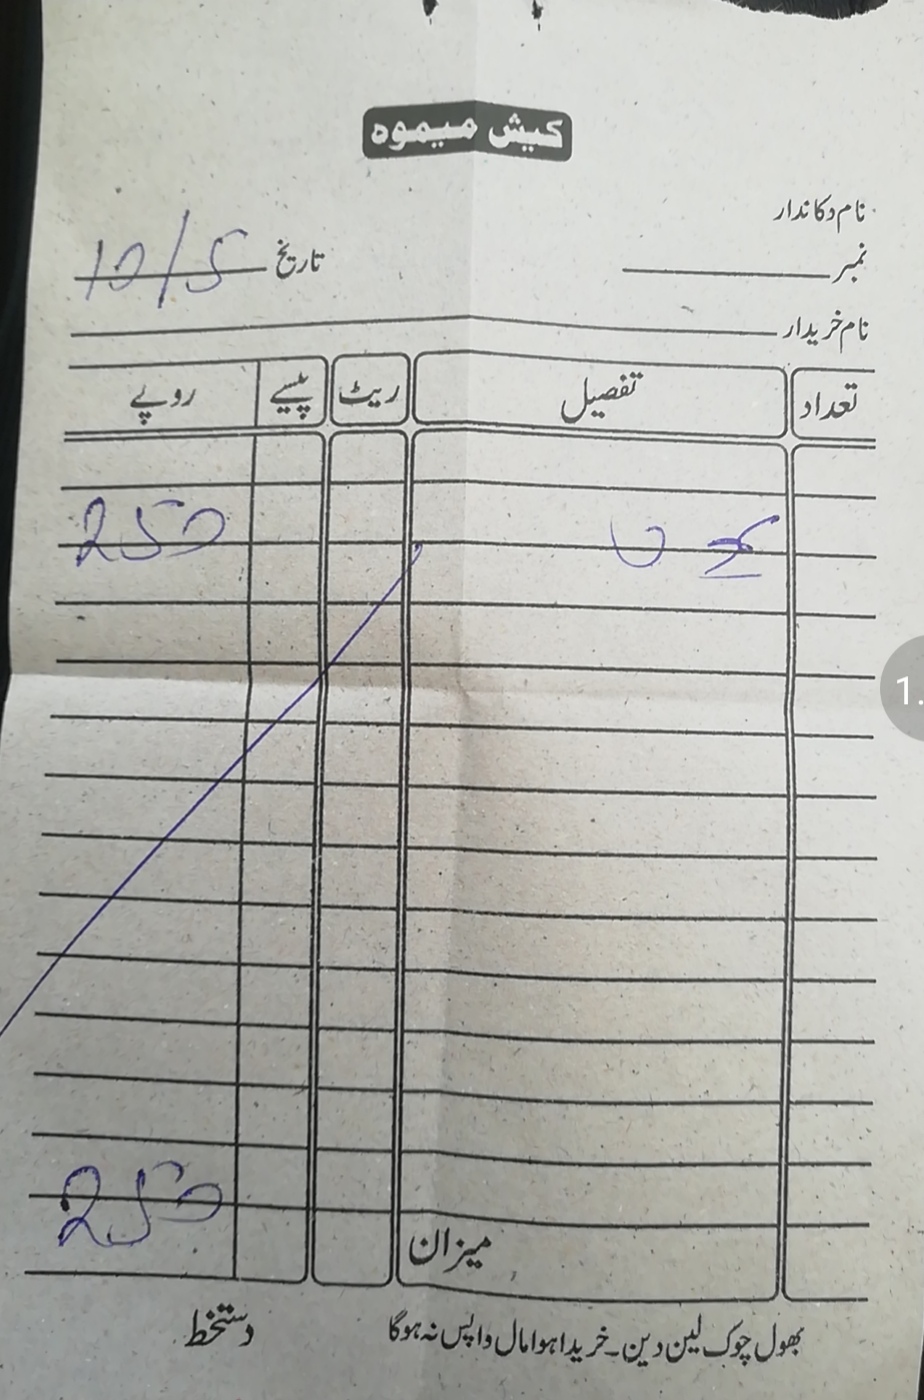 کیش میموہ
نام دکاندار
نمبر تاریخ 10/5
نام خریدار
تعداد تفصیل ریٹ پیسے روپے
250
میزان 250
بھول چوک لین دین۔ خریدا ہوا مال واپس نہ ہوگا دستخط